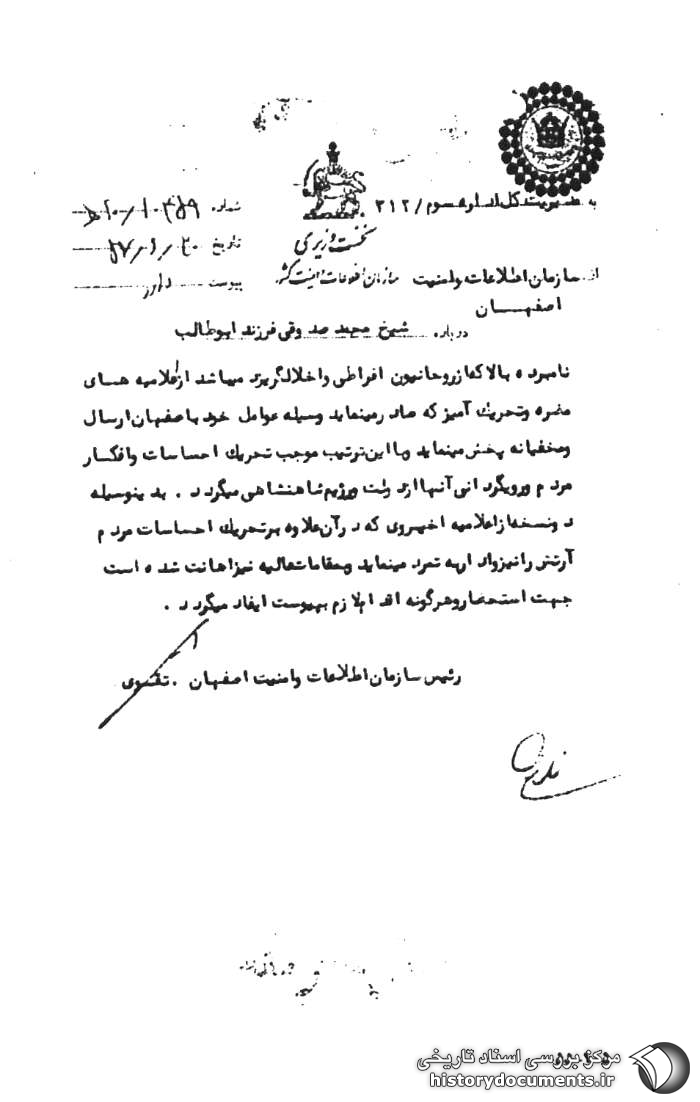 به مدیریت کل اداره سوم / ۳۱۲
شماره
نخست وزیری
تاریخ
از سازمان اطلاعات و امنیت
سازمان اطلاعات و امنیت کشور
پیوست دارد
اصفهــان
درباره شیخ محمد صدوقی فرزند ابوطالب
نامبرده بالا که از روحانیون افراطی و اخلالگر یزد میباشد از اعلامیه های
مضره و تحریک آمیز که صادر مینماید وسیله عوامل خود باصفهان ارسال
و مخفیانه پخش مینماید و با این ترتیب موجب تحریک احساسات و افکار
مردم و رویگردانی آنها از دولت و رژیم شاهنشاهی میگردد . بدینوسیله
دو نسخه از اعلامیه اخیر وی که در آن علاوه بر تحریک احساسات مردم
ارتش را نیز وادار به تمرد مینماید و بمقامات عالیه نیز اهانت شده است
جهت استحضار و هرگونه اقدام لازم بپیوست ایفاد میگردد .
رئیس سازمان اطلاعات و امنیت اصفهان . تقوی
مرکز بررسی اسناد تاریخی
historydocuments.ir